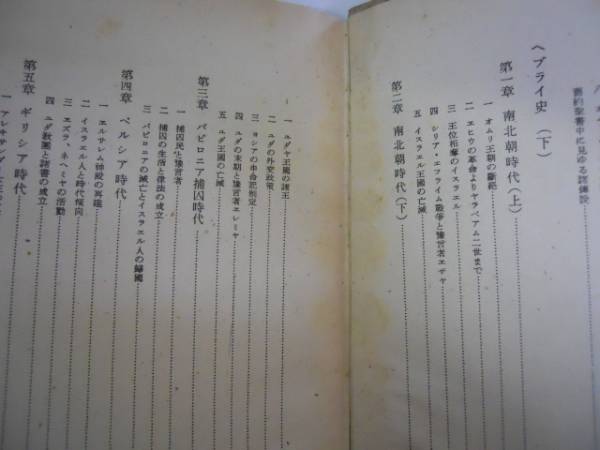 舊約聖書中に見ゆる諸傳説
ヘブライ史（下）
第一章 南北朝時代（上）
一 オムリ王朝の斷絶
二 エヒウの革命よりヤラベアム二世まで
三 王位相奪のイスラエル
四 シリア・エフライム戰爭と豫言者エザヤ
五 イスラエル王國の亡滅
第二章 南北朝時代（下）
一 ユダヤ王國の諸王
二 ユダの外交政策
三 ヨシアの申命記制定
四 ユダの末期と豫言者エレミヤ
五 ユダ王國の亡滅
第三章 バビロニア捕囚時代
一 捕囚民と豫言者
二 捕囚の生活と律法の成立
三 バビロニアの滅亡とイスラエル人の歸國
第四章 ペルシア時代
一 エルサレム神殿の再建
二 イスラエル人と時代傾向
三 エズラ、ネヘミヤの活動
四 ユダ教團と諸書の成立
第五章 ギリシア時代
一 アレキサンダー